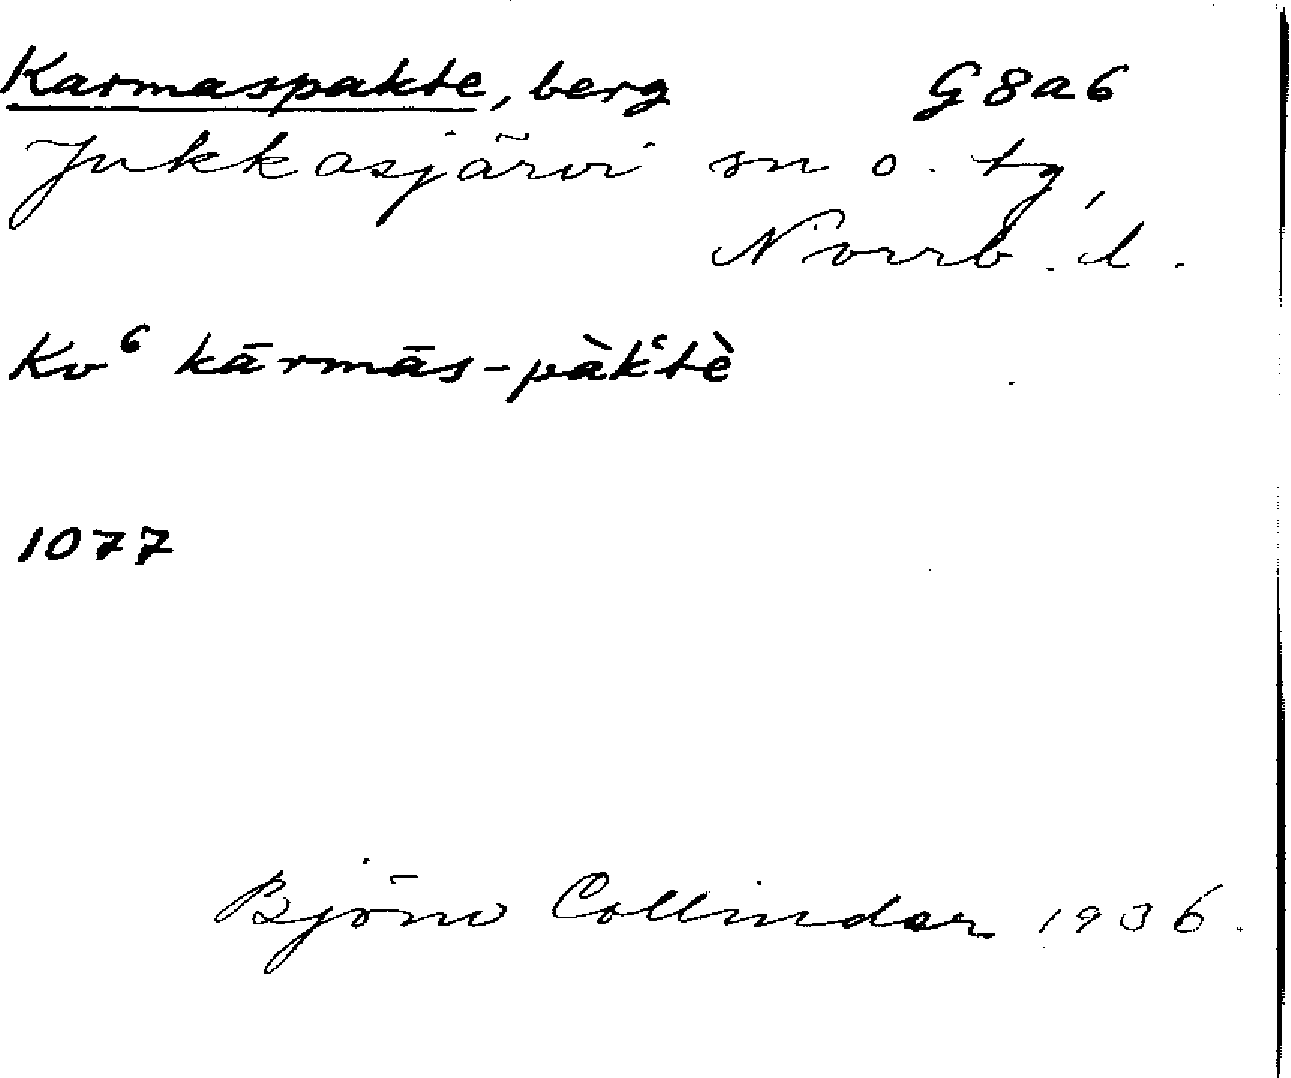 Karmaspakte, berg G8a6
Jukkasjärvi sn o. tg,
Norrb. l.
Kv⁶ kārmās-pàk‘tè
1077
Björn Collinder 1936.